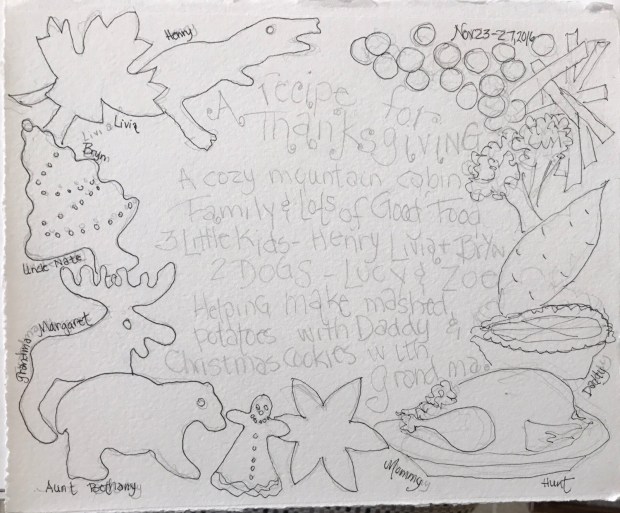 Nov 23-27, 2016
Henry
A recipe for
Thanksgiving
Livia Livia
Brynn
A cozy mountain cabin
Family & Lots of Good Food
3 Little Kids - Henry Livia + Brynn
2 DOGS - Lucy & Zoe
Uncle Nate
Helping make mashed
potatoes with Daddy &
Christmas Cookies with
grandma.
Grandma Margaret
Daddy
Mommy
Aunt Bethany
Hunt